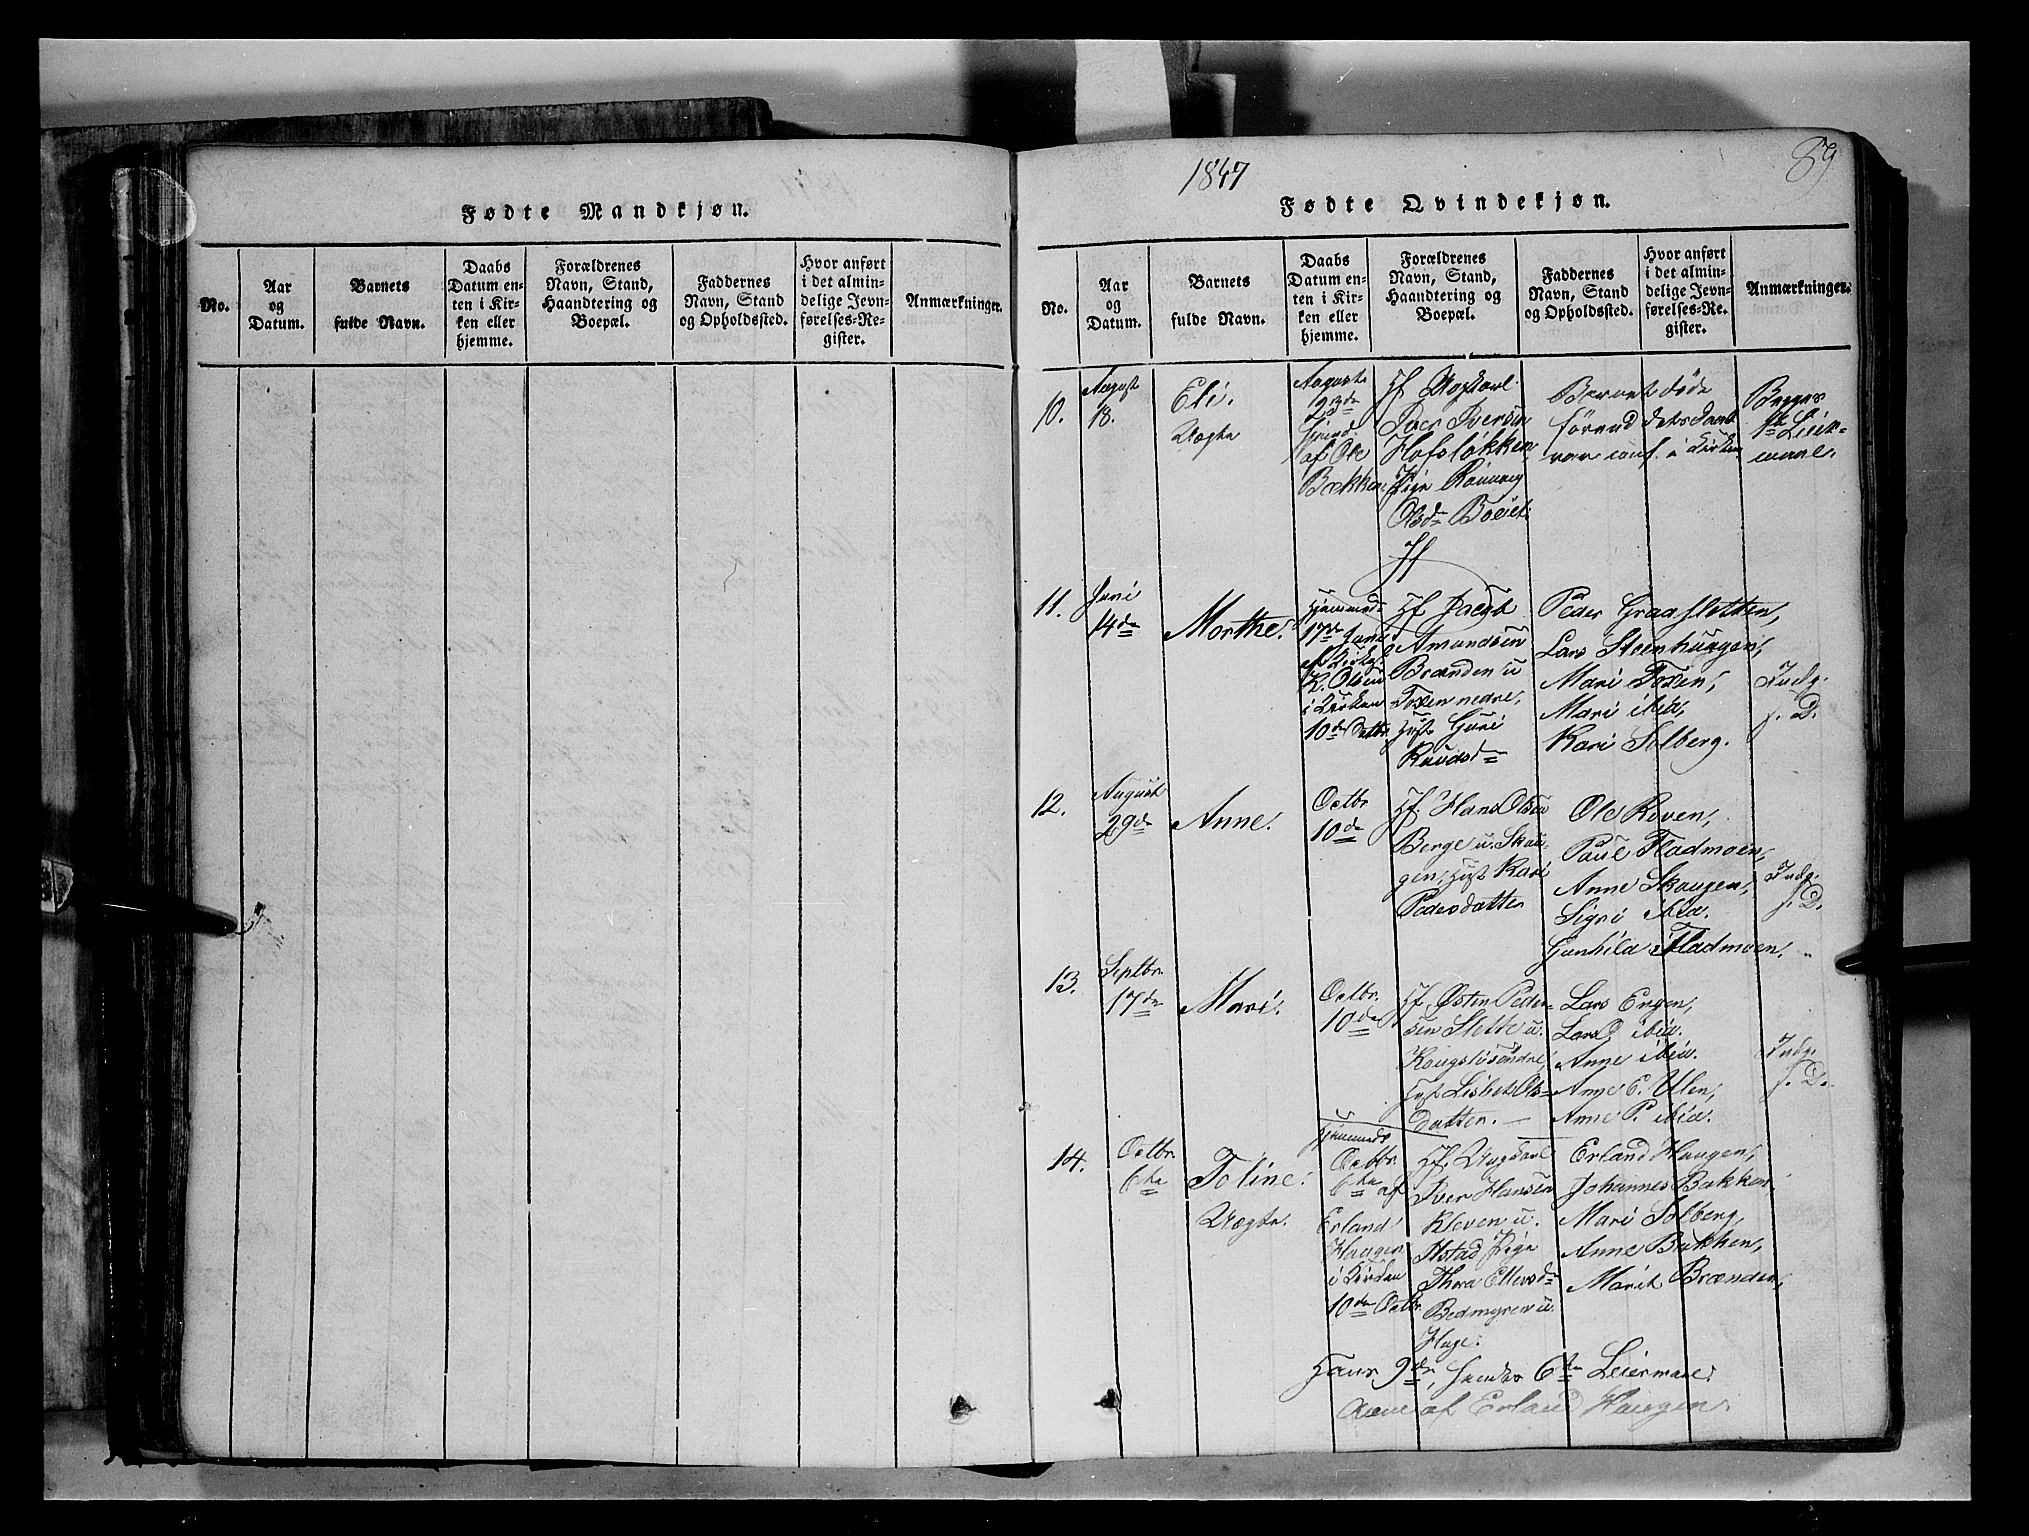 1847
89
Fødte Mandkjøn.
No.
Aar
og
Datum.
Barnets
fulde Navn.
Daabs
Datum en-
ten i Kir-
ken eller
hjemme.
Forældrenes
Navn, Stand,
Haandtering og
Boepæl.
Faddernes
Navn, Stand
og Opholdssted.
Hvor anført
i det almin-
delige Jevn-
førelses-Re-
gister.
Anmærkninger.
Fødte Qvindekjøn.
No.
Aar
og
Datum.
Barnets
fulde Navn.
Daabs
Datum en-
ten i Kir-
ken eller
hjemme.
Forældrenes
Navn, Stand,
Haandtering og
Boepæl.
Faddernes
Navn, Stand
og Opholdssted.
Hvor anført
i det almin-
delige Jevn-
førelses-Re-
gister.
Anmærkninger.
10.
August
18.
Eli.
Uægte
August
23de
af Ole
Bækken
Ungkarl
Iver Iversen
Hofsløkken
Pige Rønnaug
Olsd Böeit
Barnet døde
førend dets Daab
var conf. i Kirken
Begges
1te Leier-
maal.
11.
Juni
14de
Marthe.
Hjemmed
17de Juni
af Kirkes.
K. Olsen
i Kirken
10de Octbr.
Hf Jacob
Amundsen
Brænden u
Toxen nedre,
Hust Guri
Knudsd
Peder Graasletten,
Lars Steenhaugen,
Mari Toxen,
Mari ibid,
Kari Solberg.
Indg.
f. D.
12.
August
29de
Anne.
Octbr
10de
Hf. Hans Olsen
Berge u. Skau-
gen, Hust Kari
Pedersdatter
Ole Roven,
Paul Fladmoen,
Anne Skaugen,
Sigri ibid.
Gunhild Fladmoen,
Indg.
f. D.
13.
Septbr.
17de
Mari.
Octbr.
10de
Hf Østen Peder-
sen Slette u.
Kongsli søndre,
Hust Lisbet Ols-
datter.
Lars Engen,
Lars D. ibid.
Anne ibid.
Anne E. Ulen,
Anne P. ibid.
Indg.
f. D.
14.
Octbr.
6te
Toline.
Uægte.
Hjemmed
Octbr.
6te af
Erland
Haugen
i Kirken
10de Octbr.
Hf. Ungkarl
Iver Hansen
Kleven u.
Ilstad Pige
Thora Ellersd
Bedmyren u
Hage.
Erland Haugen,
Johannes Bakken,
Mari Solberg,
Anne Bakken,
Marit Brænden,
Hans 9de, hendes 6te Leiermaal.
af Erland Haugen.